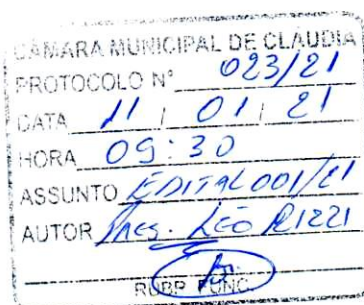 CÂMARA MUNICIPAL DE CLÁUDIA
PROTOCOLO Nº 023/21
DATA 11 / 01 / 21
HORA 09:30
ASSUNTO EDITAL 001/21
AUTOR Pres. LEO RIZZI
RUBR FUNC.